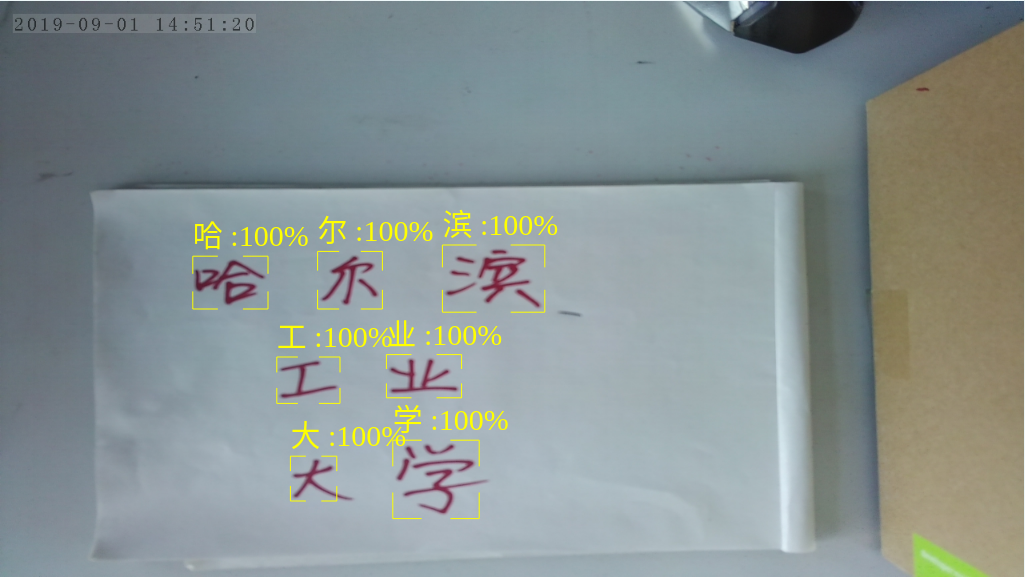 2019-09-01 14:51:20
哈 :100% 尔 :100% 滨 :100%
哈 尔 滨
工 :100% 业 :100%
工 业
大 :100% 学 :100%
大 学